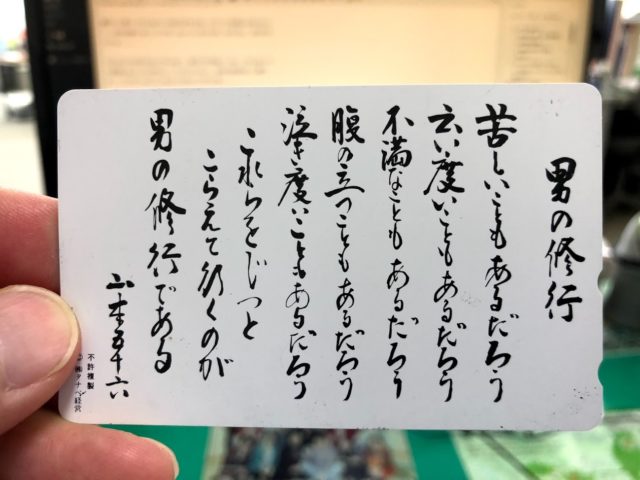 男の修行
苦しいこともあるだろう
云い度いこともあるだろう
不満なこともあるだろう
腹の立つこともあるだろう
泣き度いこともあるだろう
これらをじつと
こらえて行くのが
男の修行である
山本五十六
不許複製
㈱タナベ経営